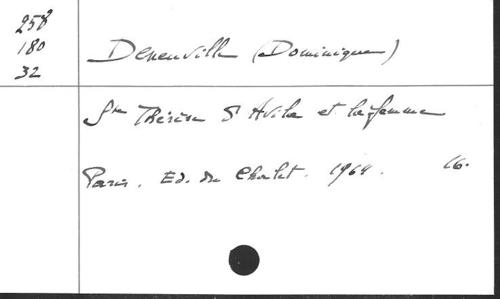 258
180
32
Deneuville (Dominique)
Ste Thérèse d'Avila et la femme
Paris. Ed. du Chalet. 1964. 16.